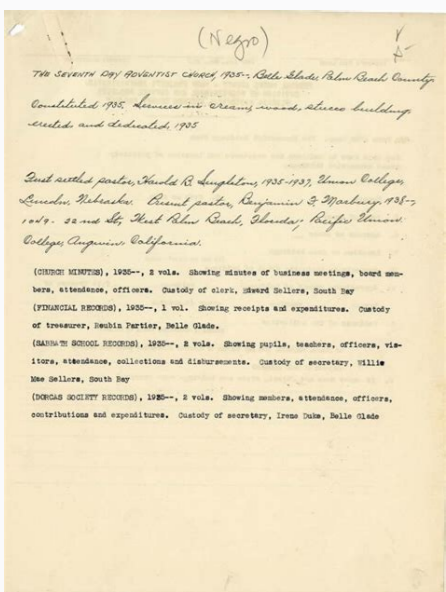 (Negro)
V
THE SEVENTH DAY ADVENTIST CHURCH, 1935--, Belle Glade, Palm Beach County.
Constituted 1935. Services in cream, wood, stucco building,
erected and dedicated, 1935
First settled pastor, Harold B. Singleton, 1935-1937, Union College,
Lincoln, Nebraska. Present pastor, Benjamin F. Marbury, 1938--,
1049- 22nd St, West Palm Beach, Florida; Pacific Union
College, Angwin, California.
(CHURCH MINUTES), 1935--, 2 vols. Showing minutes of business meetings, board mem-
bers, attendance, officers. Custody of clerk, Edward Sellers, South Bay
(FINANCIAL RECORDS), 1935--, 1 vol. Showing receipts and expenditures. Custody
of treasurer, Reubin Partier, Belle Glade.
(SABBATH SCHOOL RECORDS), 1935--, 2 vols. Showing pupils, teachers, officers, vis-
itors, attendance, collections and disbursements. Custody of secretary, Willie
Mae Sellers, South Bay
(DORCAS SOCIETY RECORDS), 1935--, 2 vols. Showing members, attendance, officers,
contributions and expenditures. Custody of secretary, Irene Duke, Belle Glade